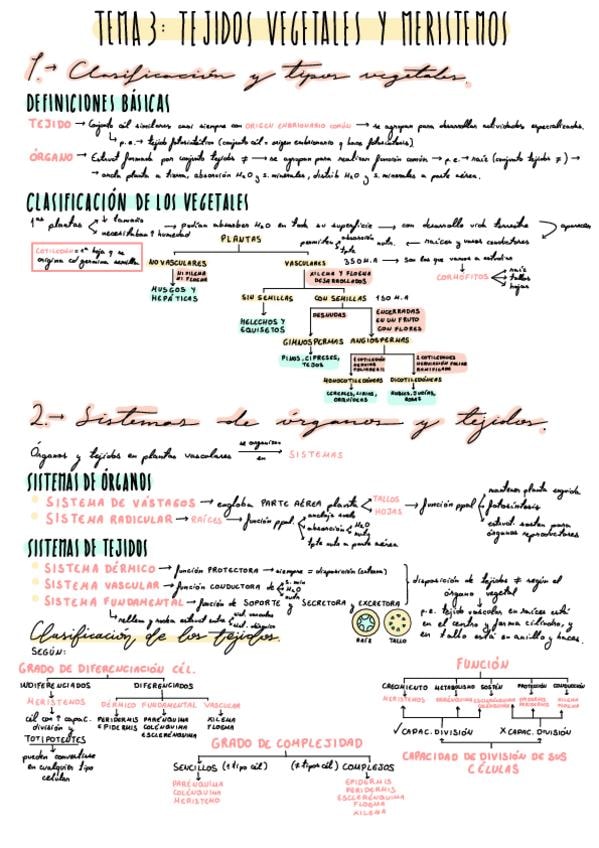 TEMA 3: TEJIDOS VEGETALES Y MERISTEMOS
1.→ Clasificación y tipos vegetales.
DEFINICIONES BÁSICAS
TEJIDO → Conjunto cél similares casi siempre con ORIGEN EMBRIONARIO COMÚN → se agrupan para desarrollar actividades especializadas.
↳ p.e. → tejido fotosintético (conjunto cél = origen embrionario y hace fotosíntesis)
ÓRGANO → Estruct formada por conjunto tejidos ≠ → se agrupan para realizar función común → p.e. → raíz (conjunto tejidos ≠) →
→ ancla planta a tierra, absorción H₂O y s. minerales, distrib H₂O y s. minerales a parte aérea.
CLASIFICACIÓN DE LOS VEGETALES
1ᵃˢ plantas
↓ tamaño
necesitaban ↑ humedad
→ podían absorber H₂O en toda su superficie → con desarrollo vida terrestre
aparecen
→ raíces y vasos conductores
permiten
absorción
nutr.
tpte
COTILEDÓN = 1ª hoja q se
origina cd germina semilla
PLANTAS
NO VASCULARES
NI XILEMA
NI FLOEMA
MUSGOS Y
HEPÁTICAS
VASCULARES
350 M.A → son las que vamos a estudiar
CORMOFITOS
raíz
tallos
hojas
XILEMA Y FLOEMA
DESARROLLADOS
SIN SEMILLAS
HELECHOS Y
EQUISETOS
CON SEMILLAS 150 M.A
DESNUDAS
ENCERRADAS
EN UN FRUTO
CON FLORES
GIMNOSPERMAS
ANGIOSPERMAS
PINOS, CIPRESES,
TEJOS
1 COTILEDÓN
2 COTILEDONES
NERVIACIÓN FOLIAR
RAMIFICADA
MONOCOTILEDÓNEAS
DICOTILEDÓNEAS
CEREALES, LIRIOS,
ORQUÍDEAS
JUDÍAS,
ROSAS
2.→ Sistemas de órganos y tejidos.
Órganos y tejidos en plantas vasculares
se organizan
en
SISTEMAS
SISTEMAS DE ÓRGANOS
SISTEMA DE VÁSTAGOS → engloba PARTE AÉREA planta
TALLOS
HOJAS
→ función ppal
mantener planta erguida
fotosíntesis
estruct. sostén para
órganos reproductores
SISTEMA RADICULAR → RAÍCES → función ppal.
anclaje suelo
absorción
H₂O
nutr
tpte nutr a parte aérea
SISTEMAS DE TEJIDOS
SISTEMA DÉRMICO → función PROTECTORA → siempre = disposición (externa)
SISTEMA VASCULAR → función CONDUCTORA de
s. min
H₂O
nutr
SISTEMA FUNDAMENTAL → función de SOPORTE y SECRETORA y EXCRETORA
↳ rellena y rodea estruct entre
sist. vascular
sist. dérmico
disposición de tejidos ≠ según el
órgano vegetal
p.e. tejido vascular en raíces está
en el centro y forma cilindro, y
en tallo está en anillo y haces.
RAÍZ
TALLO
Clasificación de los tejidos.
SEGÚN:
GRADO DE DIFERENCIACIÓN CÉL.
INDIFERENCIADOS
DIFERENCIADOS
MERISTEMOS
cél con ↑ capac.
división y
TOTIPOTENTES
pueden convertirse
en cualquier tipo
celular
DÉRMICO
FUNDAMENTAL
VASCULAR
PERIDERMIS
EPIDERMIS
PARÉNQUIMA
COLÉNQUIMA
ESCLERÉNQUIMA
XILEMA
FLOEMA
GRADO DE COMPLEJIDAD
SENCILLOS (1 tipo cél)
(≠ tipos cél) COMPLEJOS
PARÉNQUIMA
COLÉNQUIMA
MERISTEMO
EPIDERMIS
PERIDERMIS
ESCLERÉNQUIMA
FLOEMA
XILEMA
FUNCIÓN
CRECIMIENTO
METABOLISMO
SOSTÉN
PROTECCIÓN
CONDUCCIÓN
MERISTEMOS
PARÉNQUIMA
ESCLERÉNQUIMA
COLÉNQUIMA
EPIDERMIS
PERIDERMIS
XILEMA
FLOEMA
✓ CAPAC. DIVISIÓN
X CAPAC. DIVISIÓN
CAPACIDAD DE DIVISIÓN DE SUS
CÉLULAS